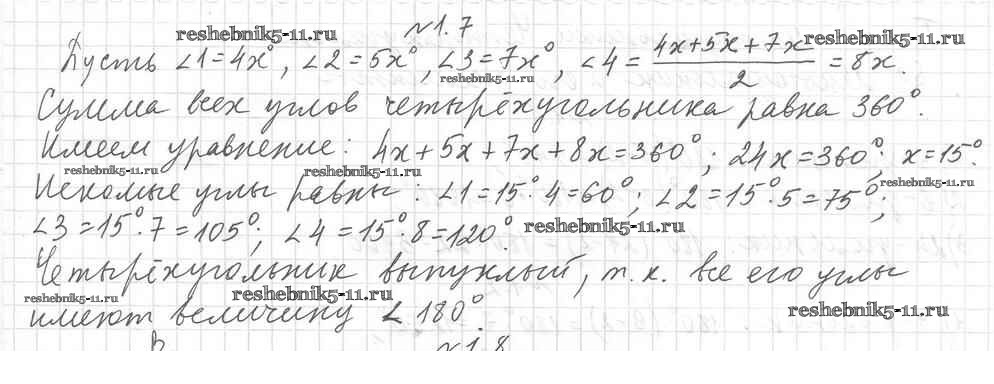 №1.7
reshebnik5-11.ru
Пусть ∠1=4x°, ∠2=5x°, ∠3=7x°, ∠4= (4x+5x+7x)/2 =8x.
reshebnik5-11.ru
reshebnik5-11.ru
Сумма всех углов четырёхугольника равна 360°.
Имеем уравнение: 4x+5x+7x+8x=360°; 24x=360°; x=15°.
reshebnik5-11.ru reshebnik5-11.ru
Искомые углы равны: ∠1=15°·4=60°; ∠2=15°·5=75°;
reshebnik5-11.ru
∠3=15°·7=105°; ∠4=15°·8=120°.
reshebnik5-11.ru
Четырёхугольник выпуклый, т.к. все его углы
reshebnik5-11.ru reshebnik5-11.ru
имеют величину < 180°.
reshebnik5-11.ru
№1.8